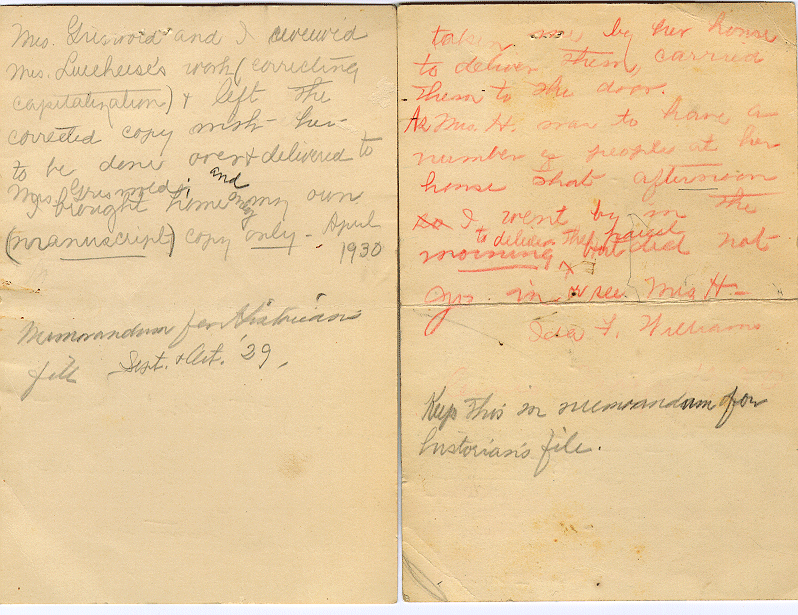 Mrs. Griswold and I received
Mrs. Lucheese's work (correcting
capitalization) & left the
corrected copy with her
to be done over & delivered to
Mrs. Griswold;
and
I brought home my own
only
(manuscript) copy only - April
1930
Memorandum for Historian's
file Sept. & Oct. '29.
taken me by her house
to deliver them, carried
them to the door.
As Mrs. H. was to have a
number of people at her
house that afternoon
so I went by in the
to deliver the
morning but did not
go in & see Mrs H-
Ida F. Williams
Keep this in memorandum for
historian's file.